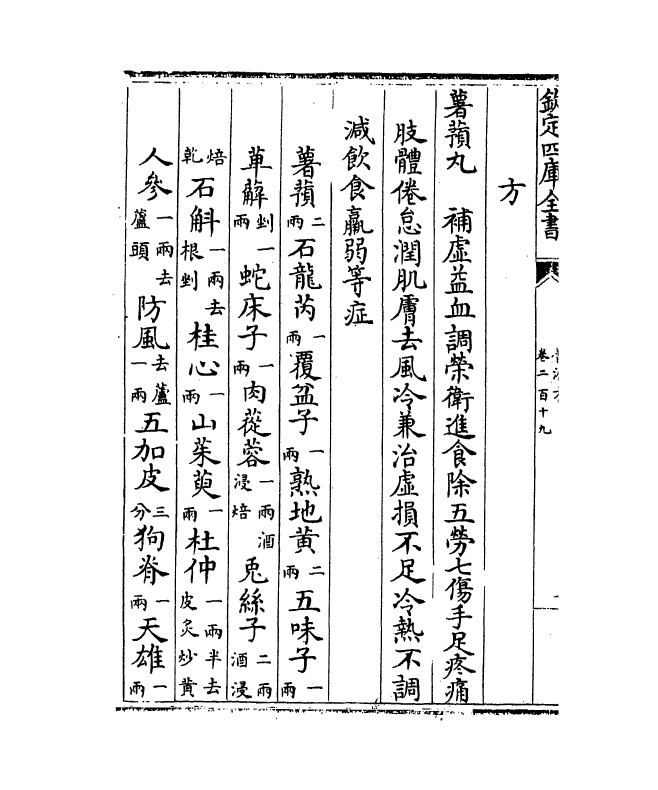 欽定四庫全書
卷二百十九
方
薯蕷丸 補虛益血調榮衛進食除五勞七傷手足疼痛
肢體倦怠潤肌膚去風冷兼治虛損不足冷熱不調
減飲食羸弱等症
薯蕷二兩石龍芮一兩覆盆子一兩熟地黄二兩五味子一兩
萆薢一兩剉蛇床子一兩肉蓯蓉一兩酒浸焙兎絲子二兩酒浸
焙乾石斛一兩去根剉桂心一兩山茱萸一兩杜仲一兩半去皮炙炒黄
人參一兩去蘆頭防風去蘆一兩五加皮三分狗脊一兩天雄一兩